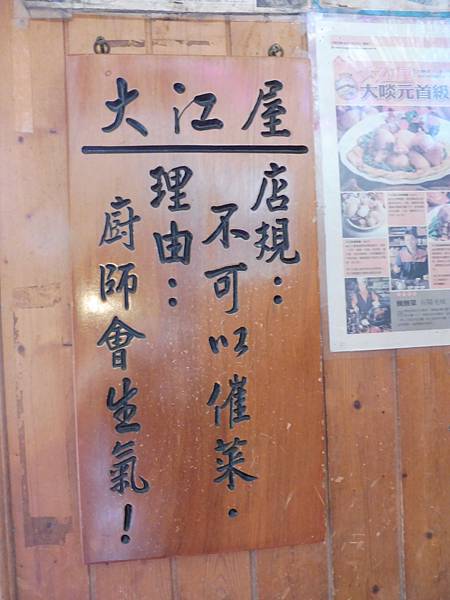 大江屋
店規：
不可以催菜．
理由：
廚師會生氣！
大啖元首級